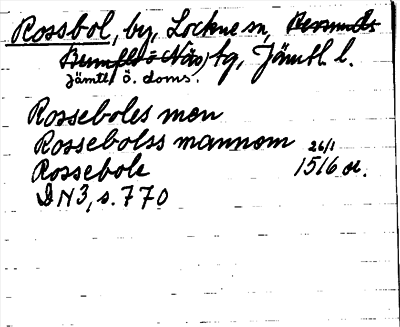 Rossbol, by, Lockne sn,
Brunflo o Näs, tg, Jämtl. l.
Jämtl ö. doms.
Rosseboles men
Rossebolss mannom 26/1
Rossebole 1516 or.
DN 3, s. 770